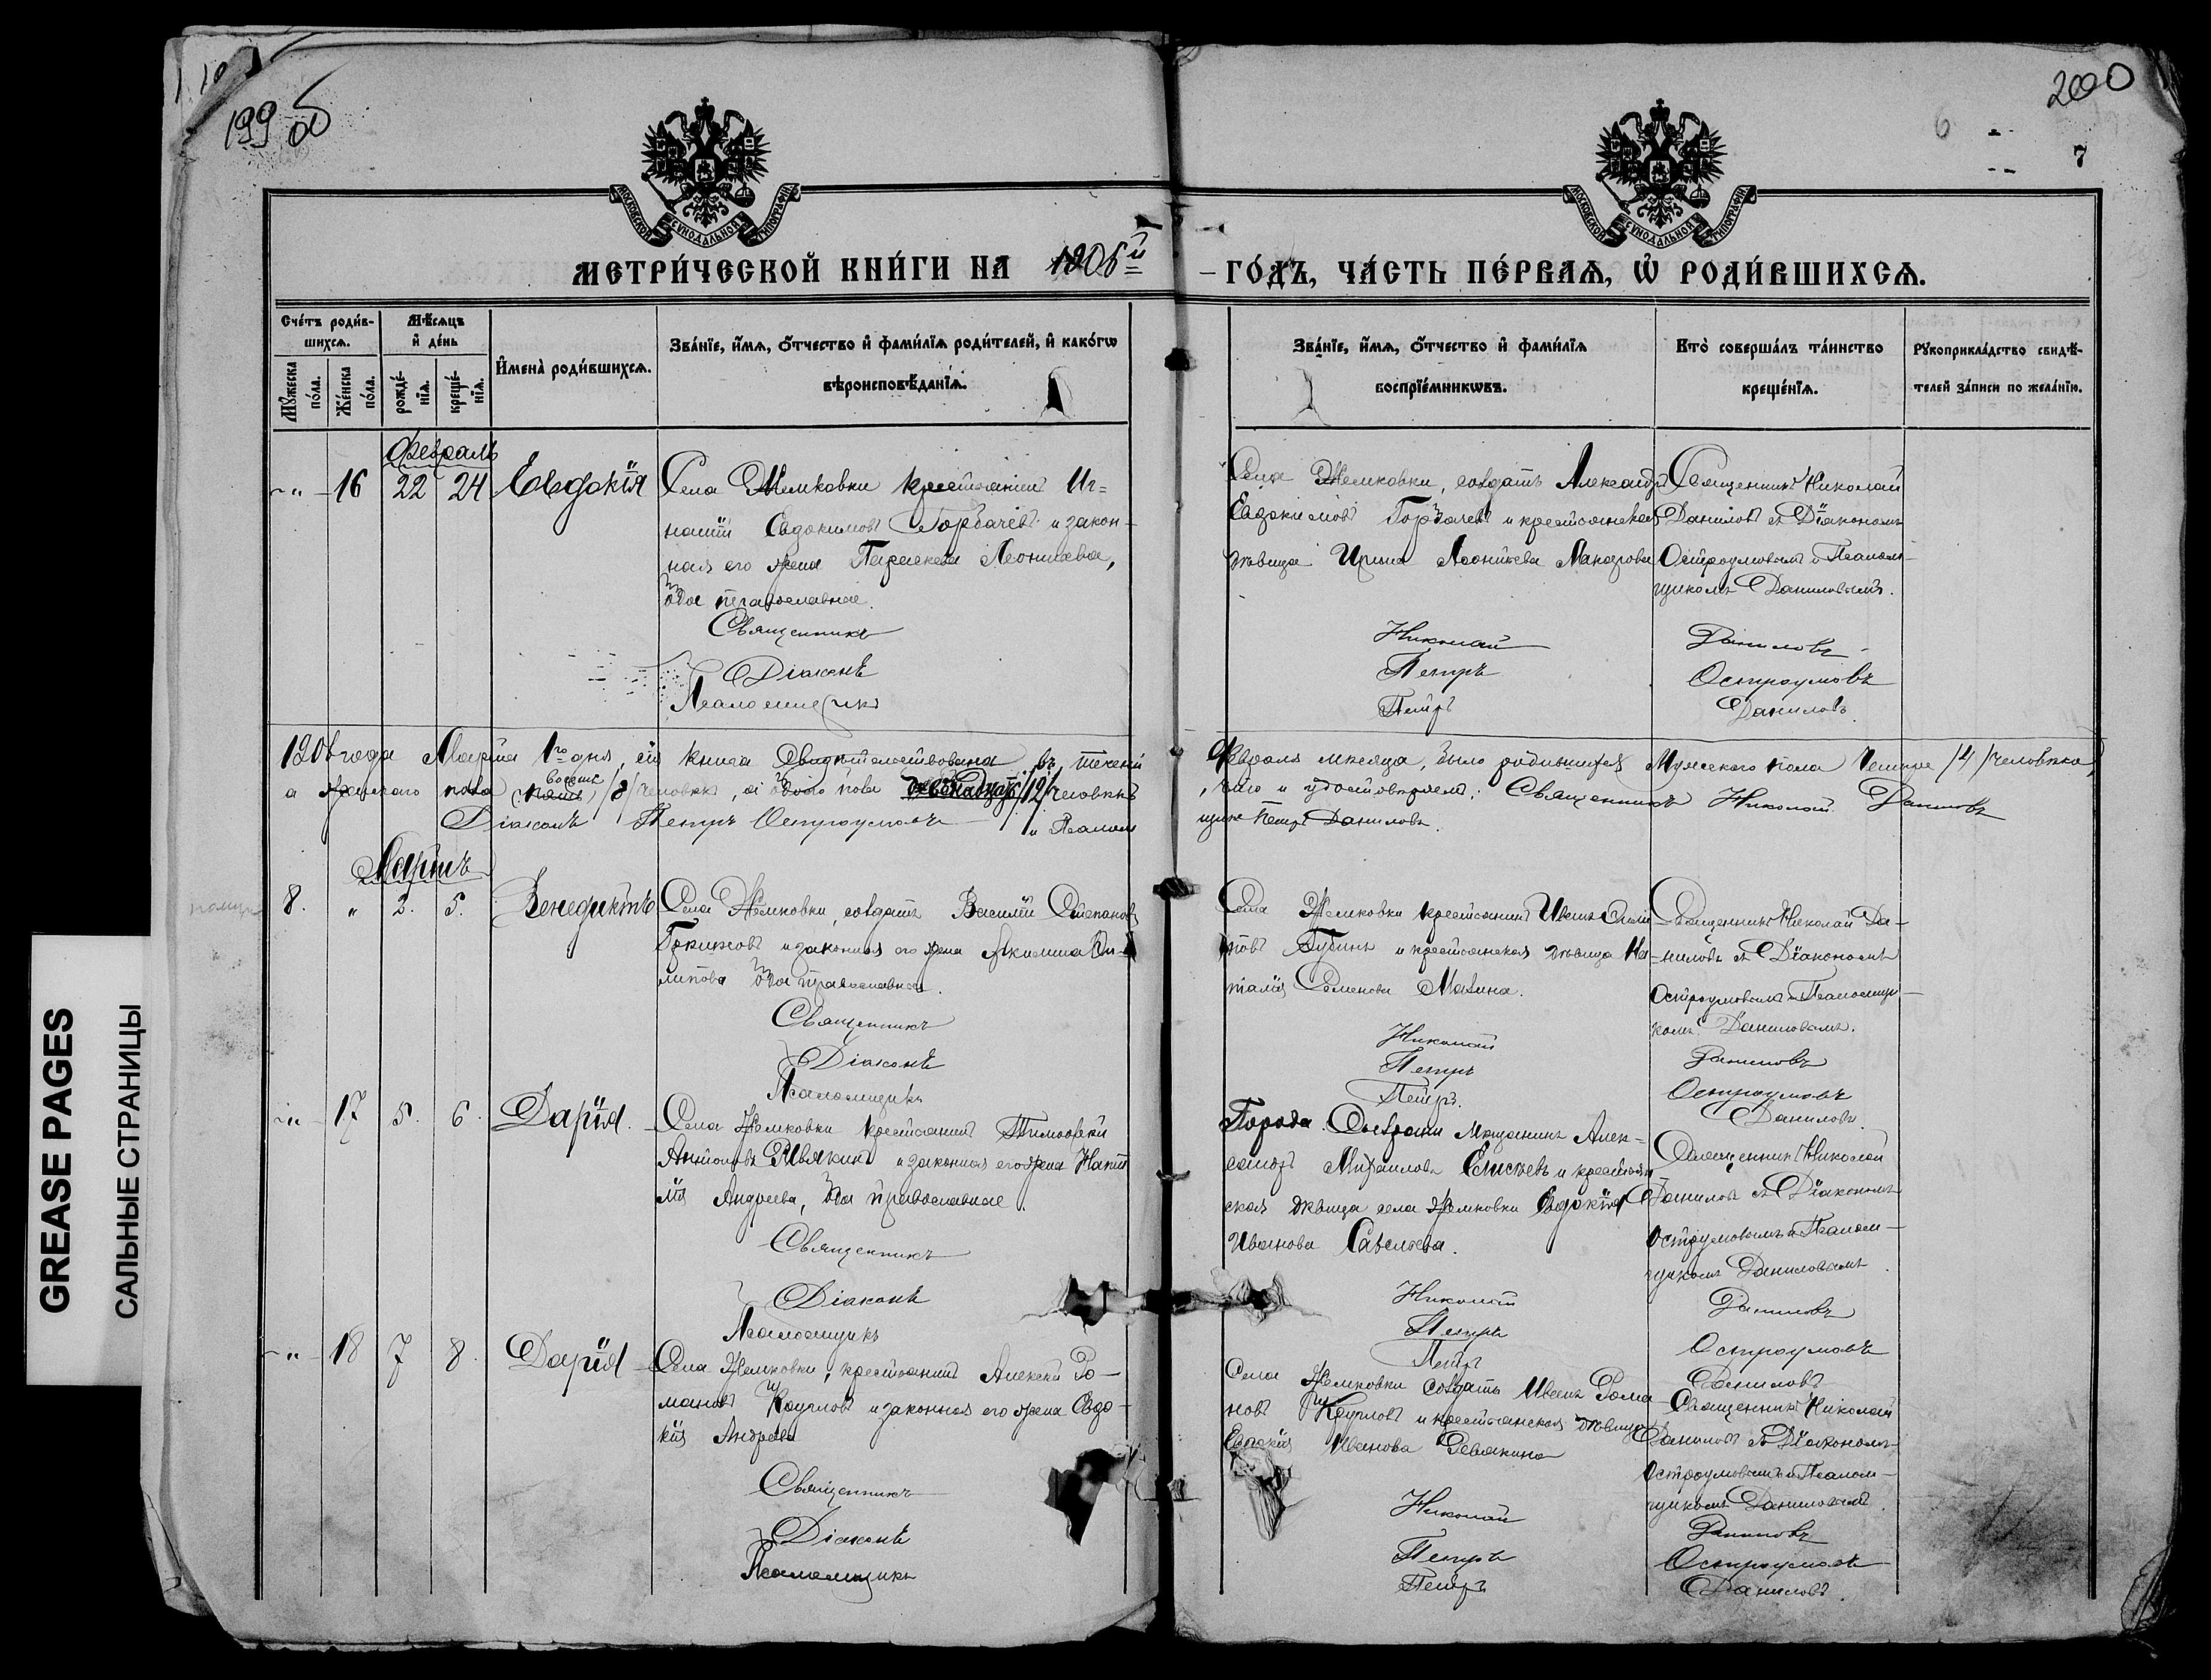 199 об
200
7
МОСКОВСКОЙ СУНОДАЛЬНОЙ ТИПОГРАФІИ
МОСКОВСКОЙ СУНОДАЛЬНОЙ ТИПОГРАФІИ
МЕТРИ́ЧЕСКОЙ КНИ́ГИ НА 1906й
ГО́ДЪ, ЧА́СТЬ ПЕ́РВАѦ, Ѡ҆ РОДИ́ВШИХСѦ.
Сче́тъ роди́в-
шихсѧ.
Мꙋ́жеска по́ла.
Же́нска по́ла.
Мѣ́сѧцъ
и҆ де́нь
рожде́-
нїѧ.
креще́-
нїѧ.
И҆мена̀ роди́вшихсѧ.
Зва́нїе, и҆́мѧ, ѻ҆́тчество и҆ фами́лїѧ роди́телей, и҆ како́гѡ
вѣроисповѣ́данїѧ.
Зва́нїе, и҆́мѧ, ѻ҆́тчество и҆ фами́лїѧ
воспрїе́мникѡвъ.
Кто̀ соверша́лъ та́инство
креще́нїѧ.
Рꙋкоприкла́дство свидѣ́-
телей за́писи по жела́нїю.
Февраль
16 22 24 Евдокія
Села Жемковки крестьянинъ Иг-
натій Евдокимовъ Горбачёвъ и закон-
ная его жена Параскева Леонтіева,
оба православные.
Священникъ
Діаконъ
Псаломщикъ
Села Жемковки, солдатъ Александръ
Евдокимовъ Горбачевъ и крестьянская
дѣвица Ирина Леонтіева Макарова
Николай
Петръ
Петръ
Священникъ Николай
Даниловъ съ Діакономъ
Остроумовымъ и Псалом-
щикомъ Даниловымъ.
Даниловъ
Остроумовъ
Даниловъ
1906 года Марта 1го дня, сія книга свидѣтельствована въ теченіи
Февраля мѣсяца, было родившихся Мужескаго пола четыре /4/ человѣка,
а женскаго пола восемь /8/ человѣкъ, а обоего пола двѣнадцать /12/ человѣкъ
, что и удостовѣряемъ: Священникъ Николай Даниловъ
Діаконъ Петръ Остроумовъ и Псалом-
щикъ Петръ Даниловъ.
Мартъ
8. " 2. 5. Венедиктъ
Села Жемковки, солдатъ Василій Степановъ
и законная его жена Акилина Фи-
липова оба православные.
Священникъ
Діаконъ
Псаломщикъ
Села Жемковки крестьянинъ Иванъ
Губинъ и крестьянская дѣвица На-
талія Семенова Мазина.
Николай
Петръ
Петръ.
Священникъ Николай Да-
ниловъ съ Діакономъ
Остроумовымъ и Псаломщи-
комъ Даниловымъ.
Даниловъ
Остроумовъ
Даниловъ.
17 5. 6. Дарія.
Села Жемковки крестьянинъ Тимофей
Антоновъ и законная его жена Ната-
лія Андреева, оба православные.
Священникъ
Діаконъ
Псаломщикъ
Города Сызрани Мѣщанинъ Алек-
сандръ Михайловъ Елисѣевъ и крестьян-
ская дѣвица села Жемковки Евдокія
Иванова Савельева.
Николай
Петръ
Петръ
Священникъ Николай
Даниловъ съ Діакономъ
Остроумовымъ и Псалом-
щикомъ Даниловымъ.
Даниловъ
Остроумовъ
Даниловъ
18 7 8. Дарія
Села Жемковки, крестьянинъ Алексѣй Ро-
мановъ Кругловъ и законная его жена Евдо-
кія Андреева
Священникъ
Діаконъ
Псаломщикъ
Села Жемковки солдатъ Иванъ Рома-
новъ Кругловъ и крестьянская дѣвица
Евдокія Иванова Ревякина
Николай
Петръ
Петръ
Священникъ Николай
Даниловъ съ Діакономъ
Остроумовымъ и Псалом-
щикомъ Даниловымъ.
Даниловъ
Остроумовъ
Даниловъ.
GREASE PAGES
САЛЬНЫЕ СТРАНИЦЫ